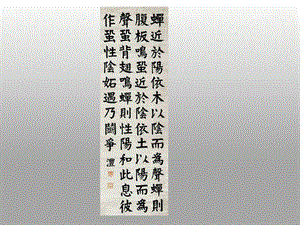 蟬近於陽依木以陰而爲聲蟬則
腹板鳴蛩近於陰依土以陽而爲
聲蛩背翅鳴蟬則性陽和此息彼
作蛩性陰妬遇乃鬪爭 澧